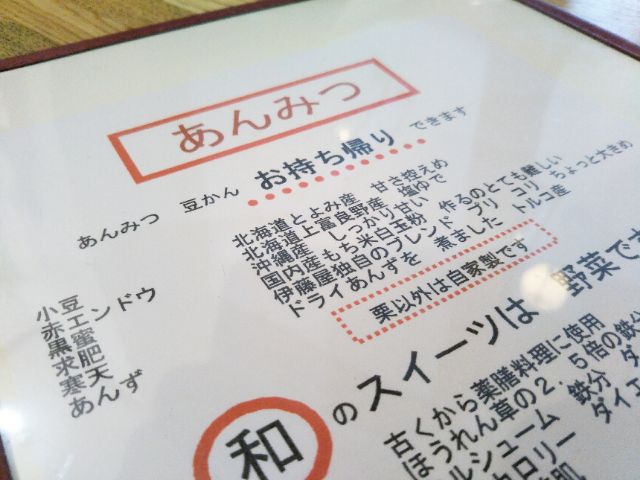 あんみつ
あんみつ 豆かん お持ち帰り できます
小豆 北海道とよみ産 甘さ控えめ
赤エンドウ 北海道上富良野産 塩ゆで
黒蜜 沖縄産 しっかり甘い
求肥 国内産もち米白玉粉 作るのとても難しい
寒天 伊藤屋独自のブレンド プリ コリ ちょっと大きめ
あんず ドライあんずを 煮ました トルコ産
栗以外は自家製です
和のスイーツは 野菜で
古くから薬膳料理に使用
ほうれん草の2.5倍の鉄分
ルシューム 鉄分
カロリー ダイエ